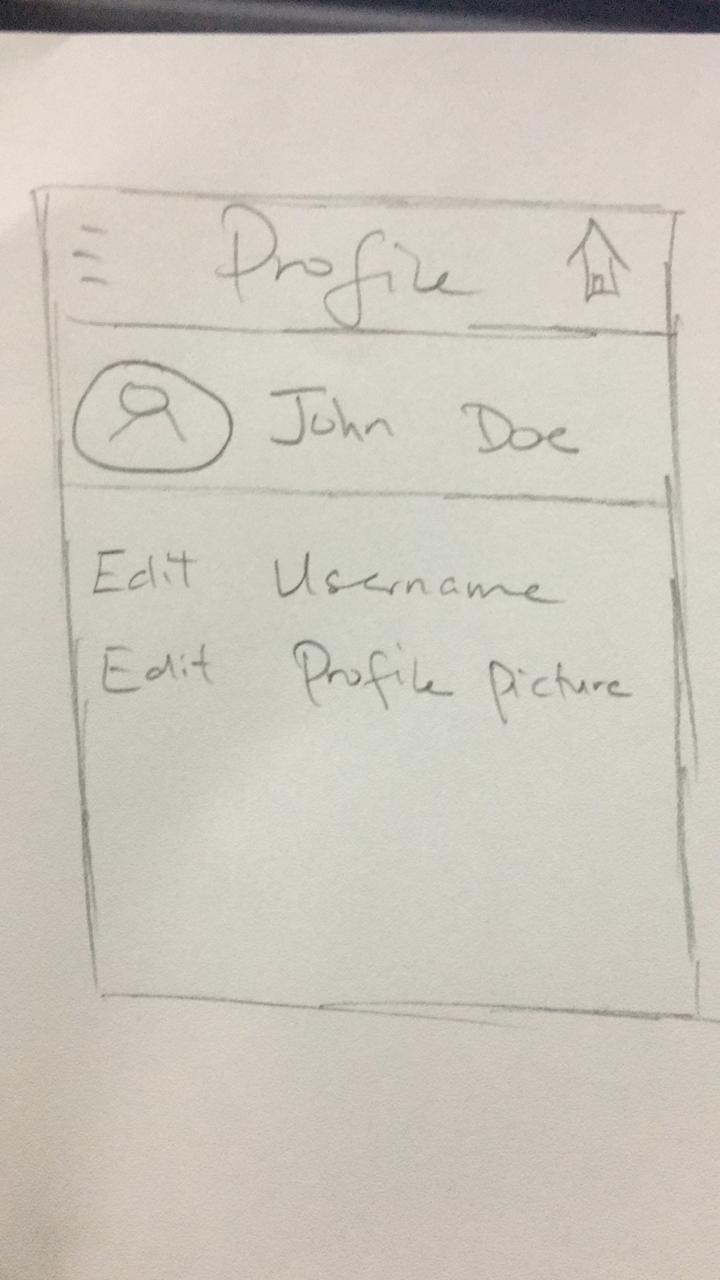 Profile
John Doe
Edit Username
Edit Profile picture